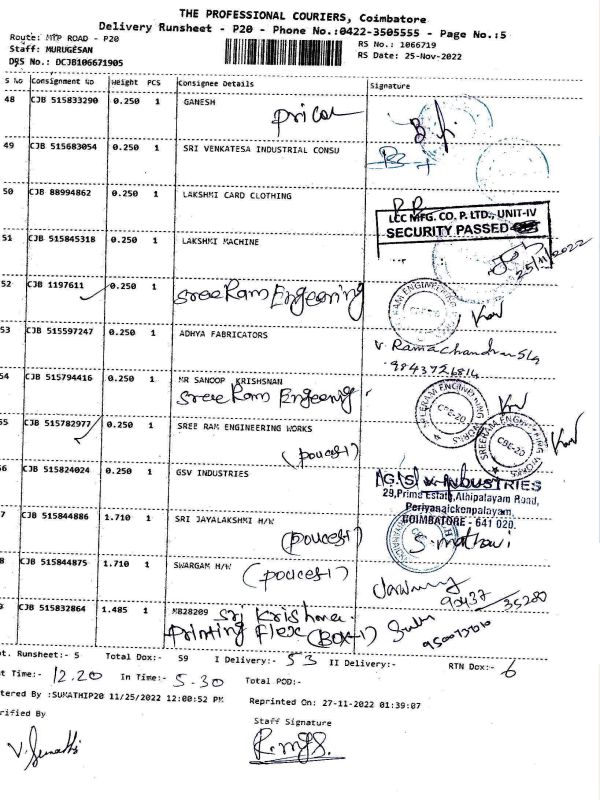 THE PROFESSIONAL COURIERS, Coimbatore
Delivery Runsheet - P20 - Phone No.:0422-3505555 - Page No.:5
Route: MTP ROAD - P20
Staff: MURUGESAN
DRS No.: DCJB106671905
RS No.: 1066719
RS Date: 25-Nov-2022
S No Consignment No Weight PCS Consignee Details Signature
48 CJB 515833290 0.250 1 GANESH
Pricol
49 CJB 515683054 0.250 1 SRI VENKATESA INDUSTRIAL CONSU
50 CJB 88994862 0.250 1 LAKSHMI CARD CLOTHING
LCC MFG. CO. P. LTD., UNIT-IV
SECURITY PASSED
51 CJB 515845318 0.250 1 LAKSHMI MACHINE
25/11/2022
52 CJB 1197611 0.250 1 Sree Ram Engeering
53 CJB 515597247 0.250 1 ADHYA FABRICATORS
V. Ramachandran
54 CJB 515794416 0.250 1 MR SANOOP KRISHSNAN
Sree Ram Engeering
SREERAM ENGINEERING WORKS
CBE-20
55 CJB 515782977 0.250 1 SREE RAM ENGINEERING WORKS
(pouces1)
SREERAM ENGINEERING WORKS
CBE-20
56 CJB 515824024 0.250 1 GSV INDUSTRIES
INDUSTRIES
29,Prime Estate,Athipalayam Road,
Periyanaickenpalayam,
COIMBATORE - 641 020.
7 CJB 515844886 1.710 1 SRI JAYALAKSHMI H/W
(pouces1)
S. mathavi
8 CJB 515844875 1.710 1 SWARGAM H/W
(pouces1)
90437 35280
CJB 515832864 1.485 1 MB28209 Sri Krishna
Printing Flex (BOX-1)
ot. Runsheet:- 5 Total Dox:- 59 I Delivery:- 53 II Delivery:- RTN Dox:- 6
t Time:- 12.20 In Time:- 5.30 Total POD:-
tered By :SUMATHIP20 11/25/2022 12:00:52 PM Reprinted On: 27-11-2022 01:39:07
rified By
Staff Signature
V. Sumathi